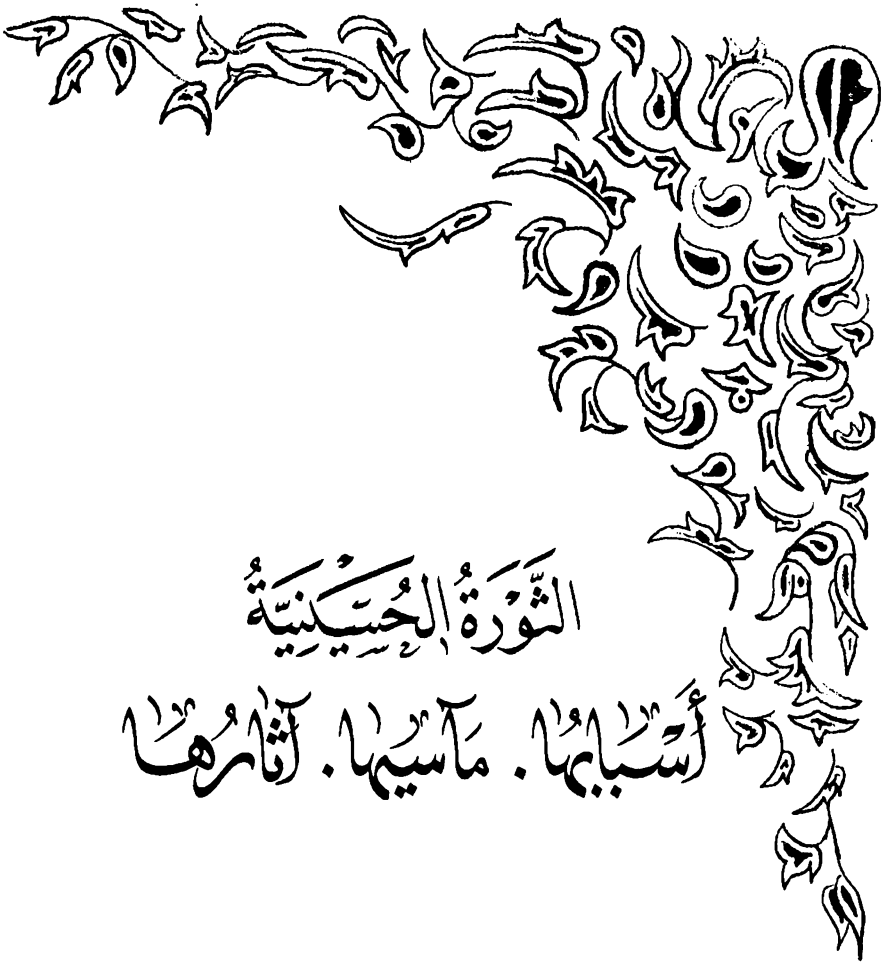 الثَّوْرَةُ الحُسَيْنِيَّةُ
أَسْبَابُهَا. مَآسِيهَا. آثَارُهَا